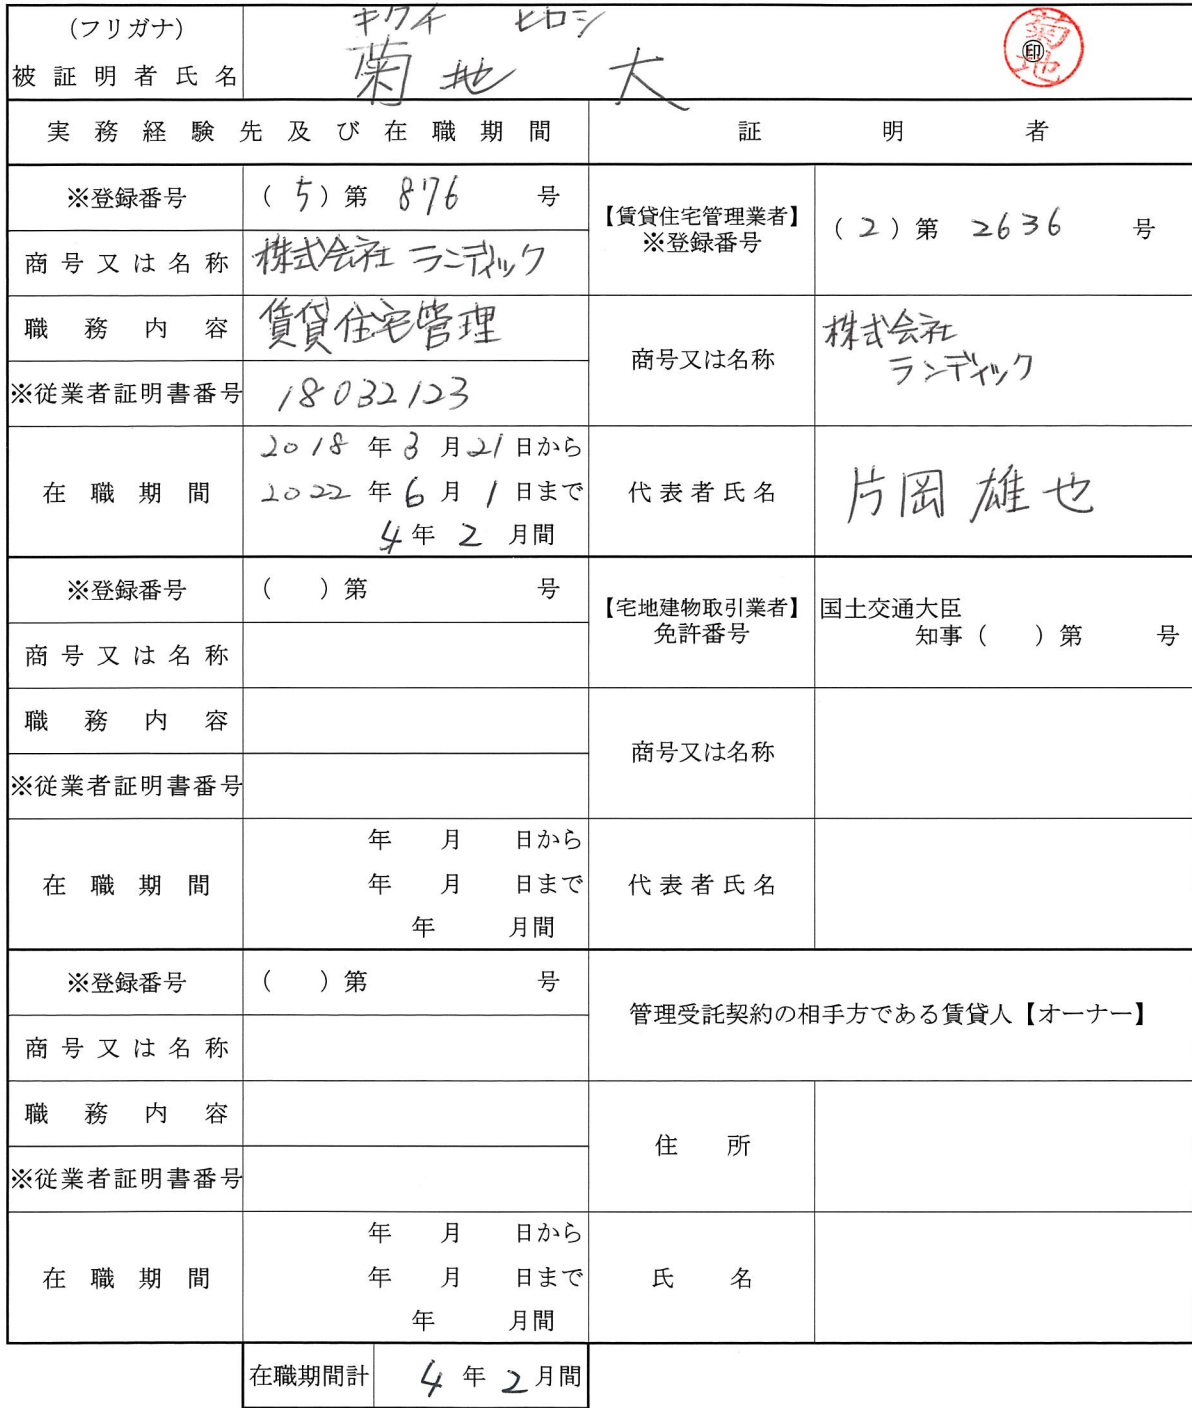 (フリガナ) キクチ ヒロシ
被証明者氏名 菊地 大 ㊞ 菊地
実務経験先及び在職期間 証明者
※登録番号 (5)第 876 号
【賃貸住宅管理業者】
※登録番号 (2)第 2636 号
商号又は名称 株式会社 ランディック
職務内容 賃貸住宅管理
商号又は名称 株式会社
ランディック
※従業者証明書番号 18032123
在職期間 2018年3月21日から
2022年6月1日まで
4年2月間
代表者氏名 片岡 雄也
※登録番号 ( )第 号
【宅地建物取引業者】 国土交通大臣
免許番号 知事( )第 号
商号又は名称
職務内容
商号又は名称
※従業者証明書番号
在職期間 年 月 日から
年 月 日まで
年 月間
代表者氏名
※登録番号 ( )第 号
管理受託契約の相手方である賃貸人【オーナー】
商号又は名称
職務内容
住所
※従業者証明書番号
在職期間 年 月 日から
年 月 日まで
年 月間
氏名
在職期間計 4年2月間